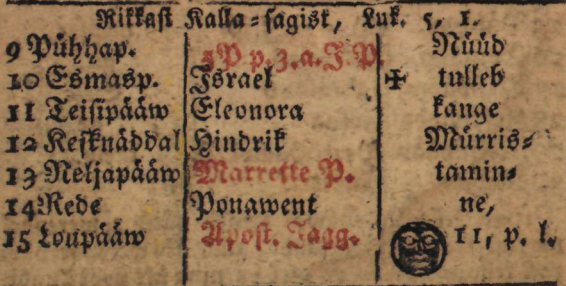 Rikkast Kalla-sagist, Luk. 5, 1.
9 Pühhap. 5 P p. 3. a. J P. Nüüd
10 Esmasp. Israel ✠ tulleb
11 Teisipääw Eleonora kange
12 Kesknäddal Hindrik Mürris-
13 Neljapääw Marrette P. tamin-
14 Rede Ponawent ne,
15 Loupääw Apost. Jagg. 11, p. l.